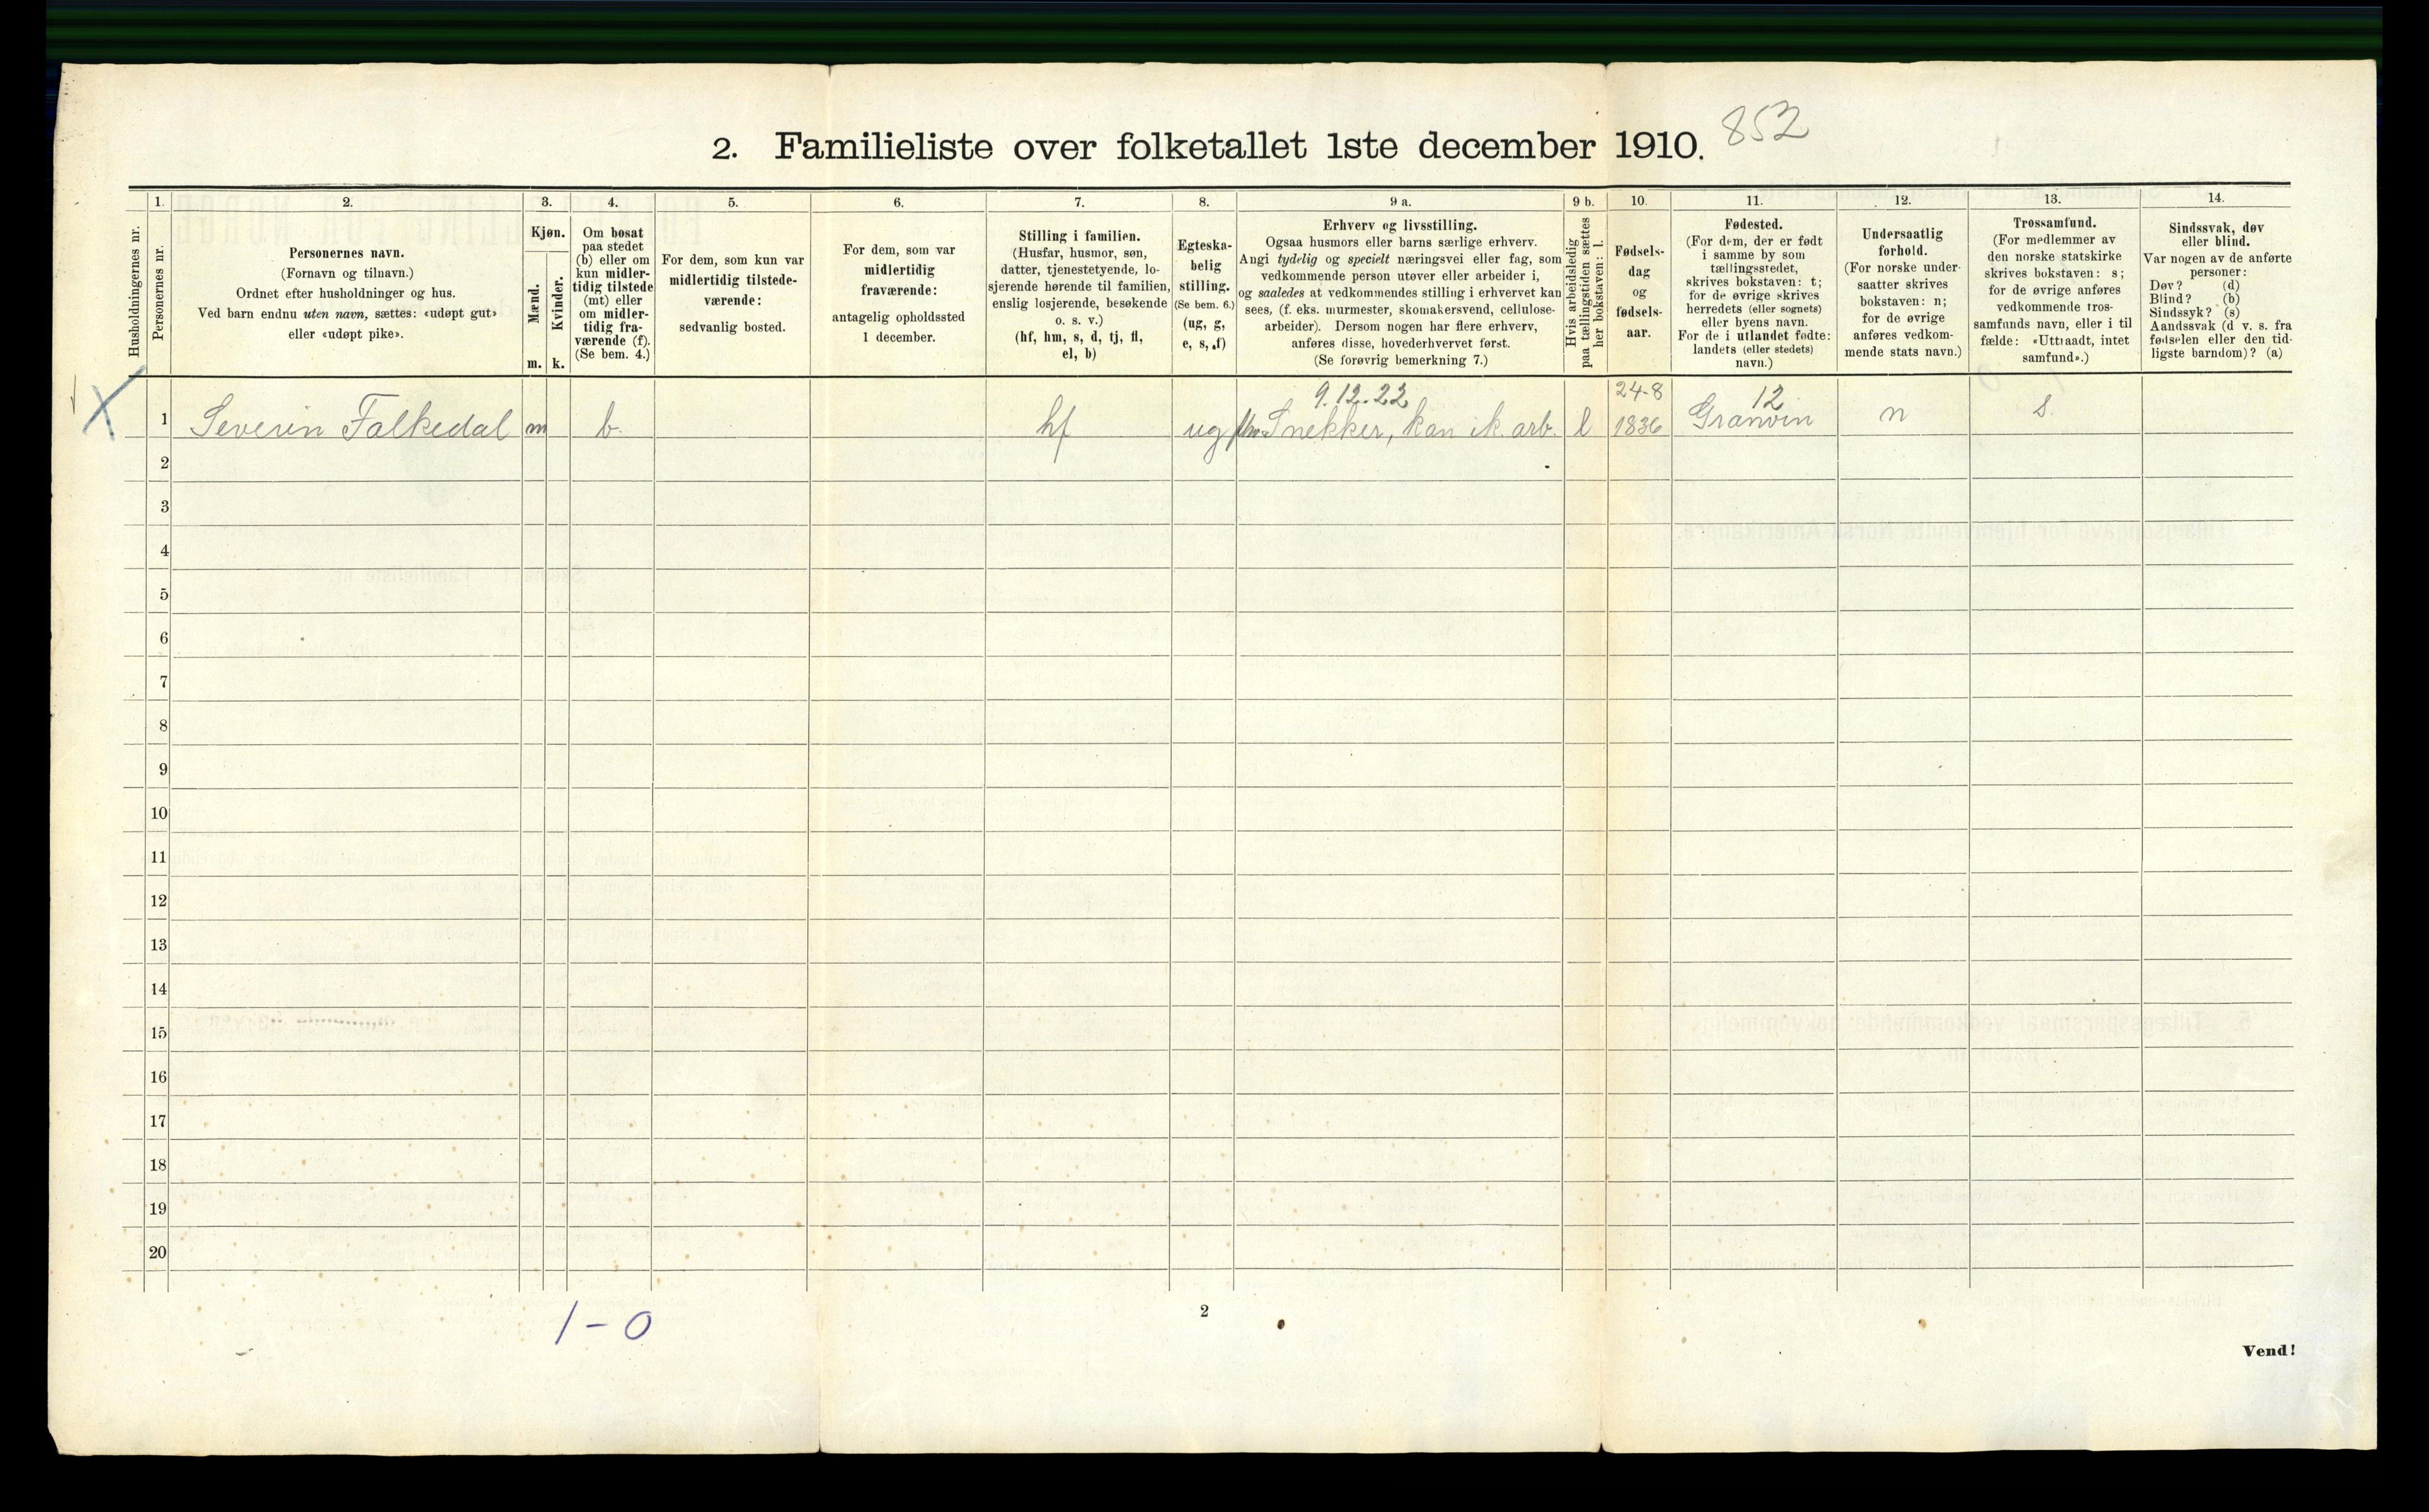 2. Familieliste over folketallet 1ste december 1910. 852
Husholdningernes nr.
1.
Personernes nr.
2.
Personernes navn.
(Fornavn og tilnavn.)
Ordnet efter husholdninger og hus.
Ved barn endnu uten navn, sættes: «udøpt gut»
eller «udøpt pike».
3.
Kjøn.
Mænd.
m.
Kvinder.
k.
4.
Om bosat
paa stedet
(b) eller om
kun midler-
tidig tilstede
(mt) eller
om midler-
tidig fra-
værende (f).
(Se bem. 4.)
5.
For dem, som kun var
midlertidig tilstede-
værende:
sedvanlig bosted.
6.
For dem, som var
midlertidig
fraværende:
antagelig opholdssted
1 december.
7.
Stilling i familien.
(Husfar, husmor, søn,
datter, tjenestetyende, lo-
sjerende hørende til familien,
enslig losjerende, besøkende
o. s. v.)
(hf, hm, s, d, tj, fl,
el, b)
8.
Egteska-
belig
stilling.
(Se bem. 6.)
(ug, g,
e, s, f)
9 a.
Erhverv og livsstilling.
Ogsaa husmors eller barns særlige erhverv.
Angi tydelig og specielt næringsvei eller fag, som
vedkommende person utøver eller arbeider i,
og saaledes at vedkommendes stilling i erhvervet kan
sees, (f. eks. murmester, skomakersvend, cellulose-
arbeider). Dersom nogen har flere erhverv,
anføres disse, hovederhvervet først.
(Se forøvrig bemerkning 7.)
9 b.
Hvis arbeidsledig
paa tællingstiden sættes
her bokstaven: l.
10.
Fødsels-
dag
og
fødsels-
aar.
11.
Fødested.
(For dem, der er født
i samme by som
tællingsstedet,
skrives bokstaven: t;
for de øvrige skrives
herredets (eller sognets)
eller byens navn.
For de i utlandet fødte:
landets (eller stedets)
navn.)
12.
Undersaatlig
forhold.
(For norske under-
saatter skrives
bokstaven: n;
for de øvrige
anføres vedkom-
mende stats navn.)
13.
Trossamfund.
(For medlemmer av
den norske statskirke
skrives bokstaven: s;
for de øvrige anføres
vedkommende tros-
samfunds navn, eller i til
fælde: «Uttraadt, intet
samfund».)
14.
Sindssvak, døv
eller blind.
Var nogen av de anførte
personer:
Døv? (d)
Blind? (b)
Sindssyk? (s)
Aandssvak (d v. s. fra
fødselen eller den tid-
ligste barndom)? (a)
9.12.22 24-8 12
X 1 Severin Folkedal m b. hf ug Snekker, kan ik. arb. l 1836 Granvin n s.
2
3
4
5
6
7
8
9
10
11
12
13
14
15
16
17
18
19
20
1 - 0
2
Vend!